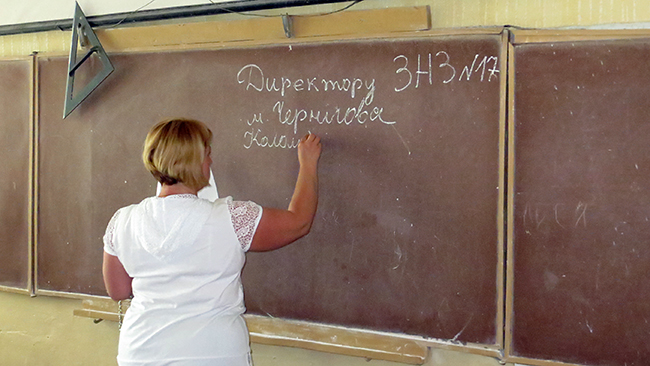 Директору ЗНЗ №17
м. Чернігова
Колом